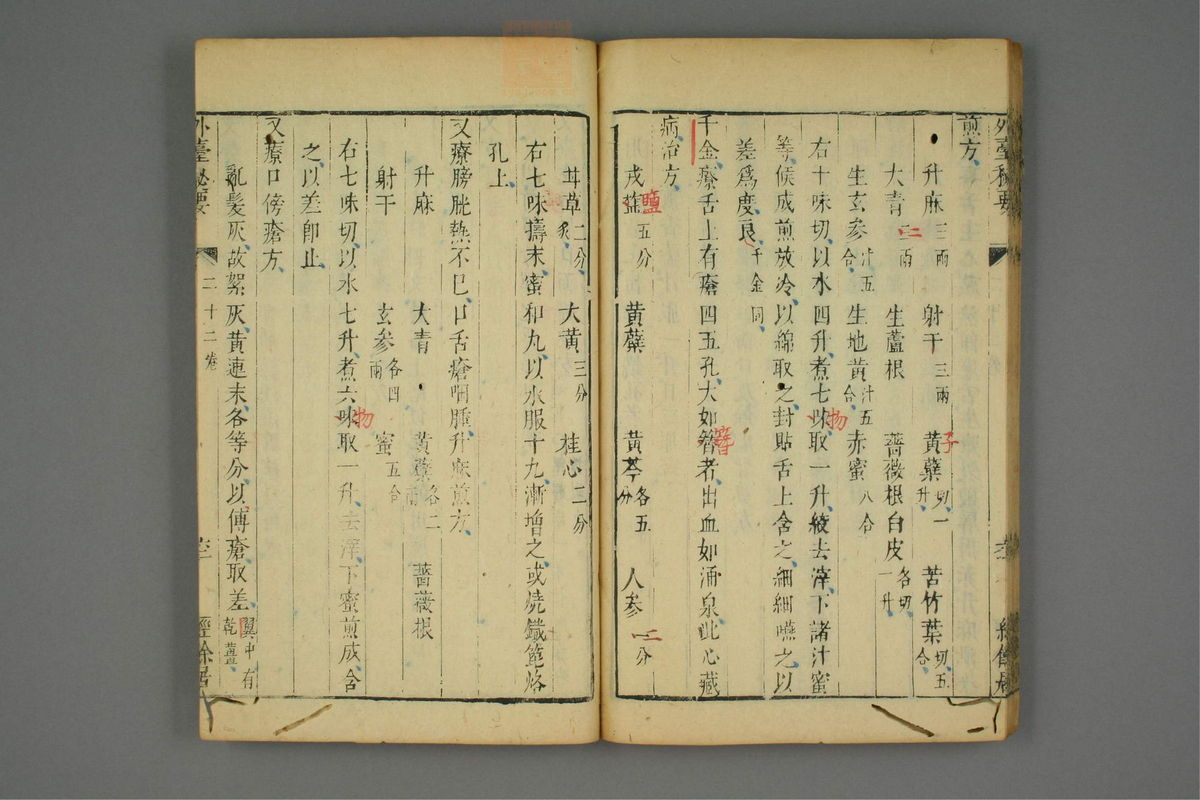 煎方
升麻三兩 射干三兩 黃蘗切一升 子 苦竹葉切五合
大青二兩 生蘆根 薔薇根白皮各切一升
生玄參汁五合 生地黃汁五合 赤蜜八合
右十味切以水四升煮七味取一升絞去滓下諸汁蜜
物
等候成煎放冷以綿取之封貼舌上含之細細嚥之以
差爲度良千金同
千金療舌上有瘡四五孔大如簪者出血如涌泉此心藏
簪
病治方
戎鹽五分 黃蘗 黃芩各五分 人參二分
鹽
甘草二分炙 大黃三分 桂心二分
右七味擣末蜜和丸以水服十丸漸增之或燒鐵篦烙
孔上
又療膀胱熱不已口舌瘡咽腫升麻煎方
升麻 大青 黃蘗各二兩 薔薇根
射干 玄參各四兩 蜜五合
右七味切以水七升煮六味取一升去滓下蜜煎成含
物
之以差卽止
又療口傍瘡方
亂髮灰故絮灰黃連末各等分以傅瘡取差翼中有乾薑
外臺秘要 二十二卷 經餘居